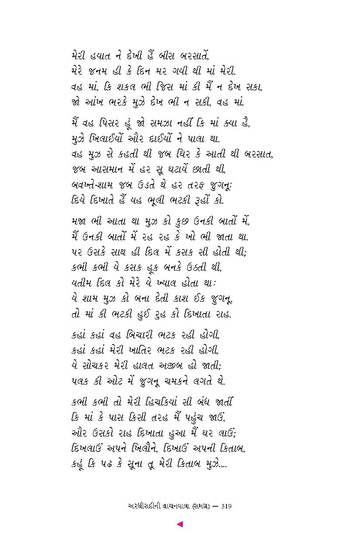 મેરી હયાત ને દેખી હૈં બીસ બરસાતેં,
મેરે જનમ હી કે દિન મર ગયી થી માં મેરી.
વહ માં, કિ શકલ ભી જિસ માં કી મૈં ન દેખ સકા,
જો આંખ ભરકે મુઝે દેખ ભી ન સકી, વહ માં.
મૈં વહ પિસર હૂં જો સમઝા નહીં કિ માં ક્યા હૈ,
મુઝે ખિલાઈયોં ઔર દાઈયોં ને પાલા થા.
વહ મુઝ સે કહતી થી જબ ઘિર કે આતી થી બરસાત,
જબ આસમાન મેં હર સૂ ઘટાયેં છાતી થી,
બવખ્તે-શામ જબ ઉડતે થે હર તરફ જુગનૂ:
દિયે દિખાતે હૈં યહ ભૂલી ભટકી રૂહોં કો.
મજા ભી આતા થા મુઝ કો કુછ ઉનકી બાતોં મેં,
મૈં ઉનકી બાતોં મેં રહ રહ કે ખો ભી જાતા થા.
પર ઉસકે સાથ હી દિલ મેં કસક સી હોતી થી;
કભી કભી યે કસક હૂક બનકે ઉઠતી થી,
યતીમ દિલ કો મેરે યે ખ્યાલ હોતા થા:
યે શામ મુઝ કો બના દેતી કાશ ઈક જુગનૂ,
તો માં કી ભટકી હુઈ રૂહ કો દિખાતા રાહ.
કહાં કહાં વહ બિચારી ભટક રહી હોગી,
કહાં કહાં મેરી ખાતિર ભટક રહી હોગી,
યે સોચકર મેરી હાલત અજીબ હો જાતી;
પલક કી ઓટ મેં જુગનૂ ચમકને લગતે થે.
કભી કભી તો મેરી હિચકિયાં સી બંધ જાતીં
કિ માં કે પાસ કિસી તરહ મૈં પહુંચ જાઉં,
ઔર ઉસકો રાહ દિખાતા હુઆ મૈં ઘર લાઉં;
દિખલાઉં અપને ખિલૌને, દિખાઉં અપની કિતાબ,
કહૂં કિ પઢ કે સૂના તૂ મેરી કિતાબ મુઝે....
અરધીસદીની વાચનયાત્રા (સમગ્ર) — 319